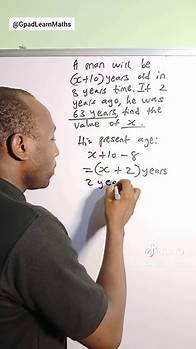 @GpadLearnMaths
A man will be
(x+10) years old in
8 years time. If 2
years ago, he was
63 years, find the
value of x.
His present age:
x+10-8
=(x+2) years
2 yea